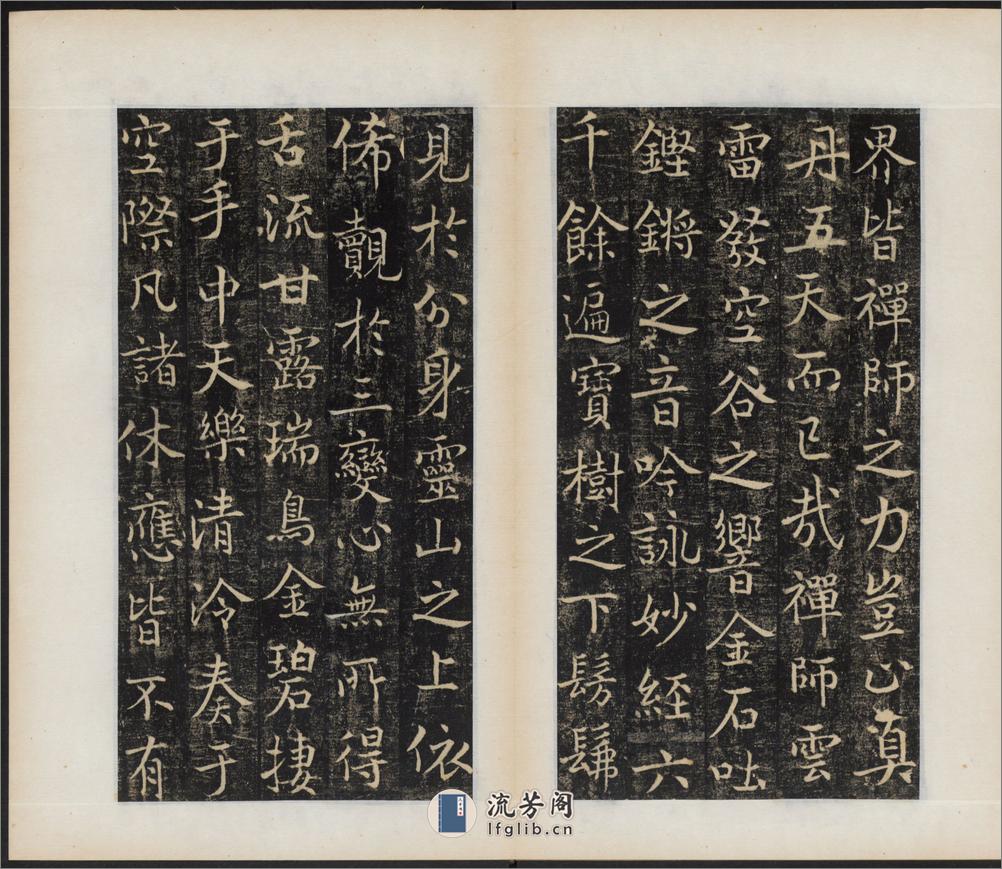 界皆禪師之力豈止真
丹五天而已哉禪師雲
雷發空谷之響金石吐
鏗鏘之音吟詠妙經六
千餘遍寶樹之下髣髴
見於分身靈山之上依
俙覿於三變心無所得
舌流甘露瑞鳥金碧捿
于手中天樂清泠奏于
空際凡諸休應皆不有
流芳阁
lfglib.cn